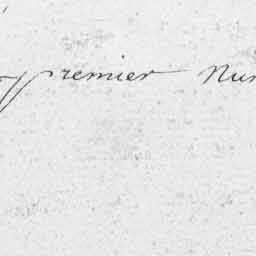 premier Nu